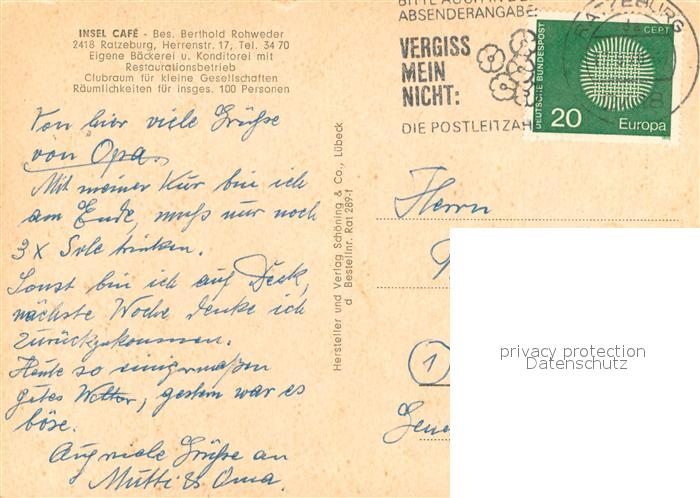 INSEL CAFÉ - Bes. Berthold Rohweder
2418 Ratzeburg, Herrenstr. 17, Tel. 34 70
Eigene Bäckerei u. Konditorei mit
Restaurationsbetrieb
Clubraum für kleine Gesellschaften
Räumlichkeiten für insges. 100 Personen
Von hier viele Grüße
von Opa.
Mit meiner Kur bin ich
am Ende, muß nur noch
3 x Sole trinken.
Sonst bin ich auf Deck,
nächste Woche denke ich
zurückzukommen.
Heute so einigermaßen
gutes Wetter, gestern war es
böse.
Auch viele Grüße an
Mutti & Oma.
Hersteller und Verlag Schöning & Co., Lübeck
a Bestellnr. Rat 289-f
ABSENDERANGABE:
VERGISS
MEIN
NICHT:
DIE POSTLEITZAH
RATZEBURG
CEPT
DEUTSCHE BUNDESPOST
20 Europa
Herrn
1
privacy protection
Datenschutz